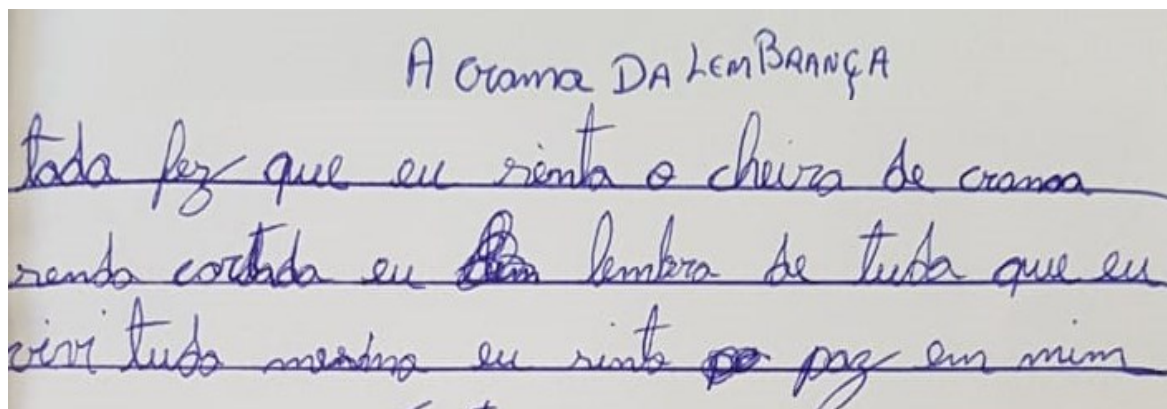 A crama DA LEMBRANÇA
toda fez que eu sinto o cheiro de crama
sendo cortada eu lembro de tudo que eu
vivi tudo mesmo eu sinto paz em mim